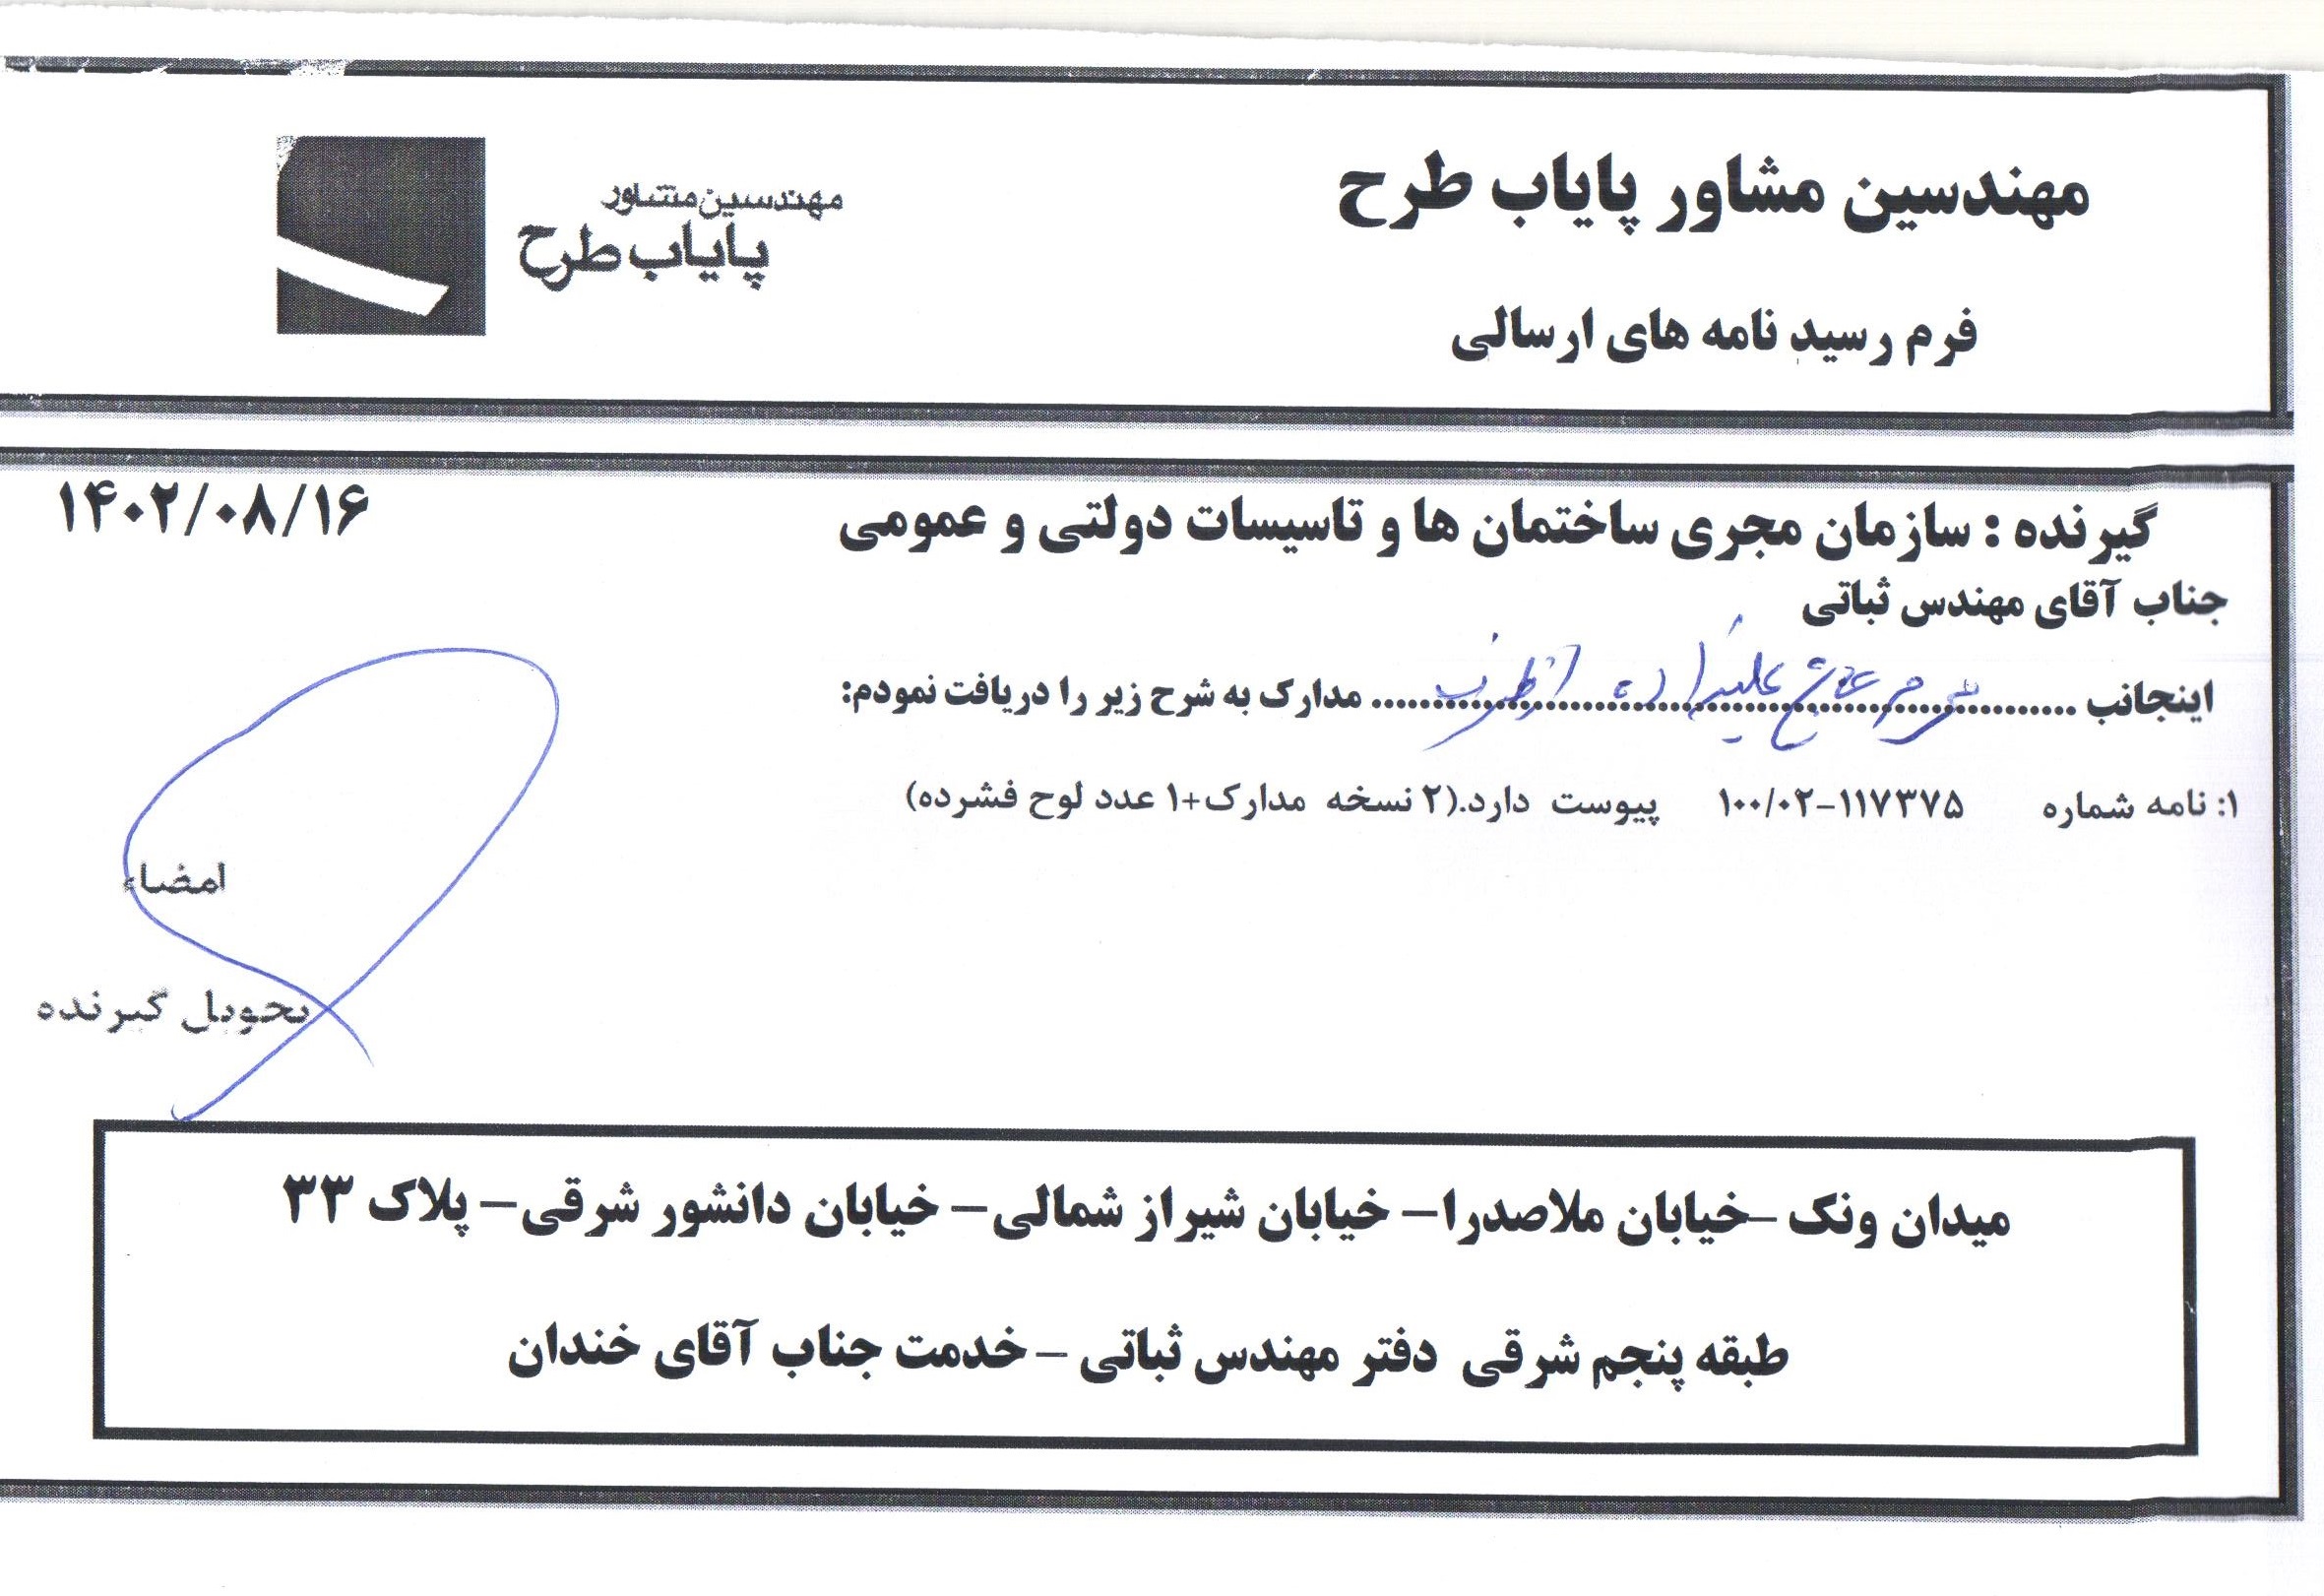 مهندسین مشاور پایاب طرح
مهندسین مشاور
پایاب طرح
فرم رسید نامه های ارسالی
گیرنده : سازمان مجری ساختمان ها و تاسیسات دولتی و عمومی
۱۴۰۲/۰۸/۱۶
جناب آقای مهندس ثباتی
اینجانب علیزاده از طرف مدارک به شرح زیر را دریافت نمودم:
۱: نامه شماره ۱۰۰/۰۲-۱۱۷۳۷۵ پیوست دارد.(۲ نسخه مدارک+۱ عدد لوح فشرده)
امضاء
تحویل گیرنده
میدان ونک –خیابان ملاصدرا– خیابان شیراز شمالی– خیابان دانشور شرقی– پلاک ۳۳
طبقه پنجم شرقی دفتر مهندس ثباتی – خدمت جناب آقای خندان